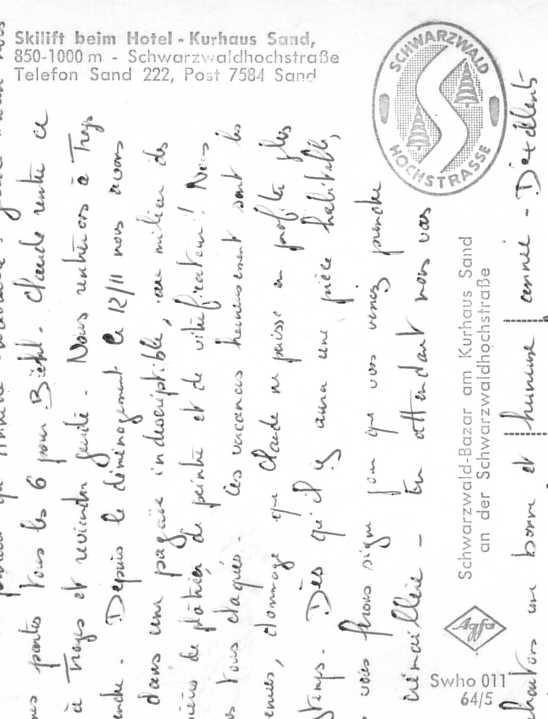 Skilift beim Hotel - Kurhaus Sand,
850-1000 m - Schwarzwaldhochstraße
Telefon Sand 222, Post 7584 Sand
SCHWARZWALD
HOCHSTRASSE
Schwarzwald-Bazar am Kurhaus Sand
an der Schwarzwaldhochstraße
Agfa
Swho 011
64/5
parties tous les 6 pour Claude rentre ce
à Troyes et reviendra jeudi. Nous rentrerons à Troyes
Depuis le déménagement le 12/11 nous avons
dans une pagaie indescriptible, au milieu de
de plâtrier, de peintre et de vitrificateur! Nous
tous claqués. Les vacances heureusement sont les
dommage que Claude ne puisse en profiter plus
Dès qu'il y aura une pièce habitable,
vous ferons signe pour que vous veniez prendre
En attendant nous vous
une bonne et heureuse année - D'excellents